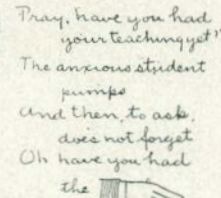 Pray, have you had
your teaching yet"
The anxious student
pumps
And then, to ask,
does not forget
Oh have you had
the